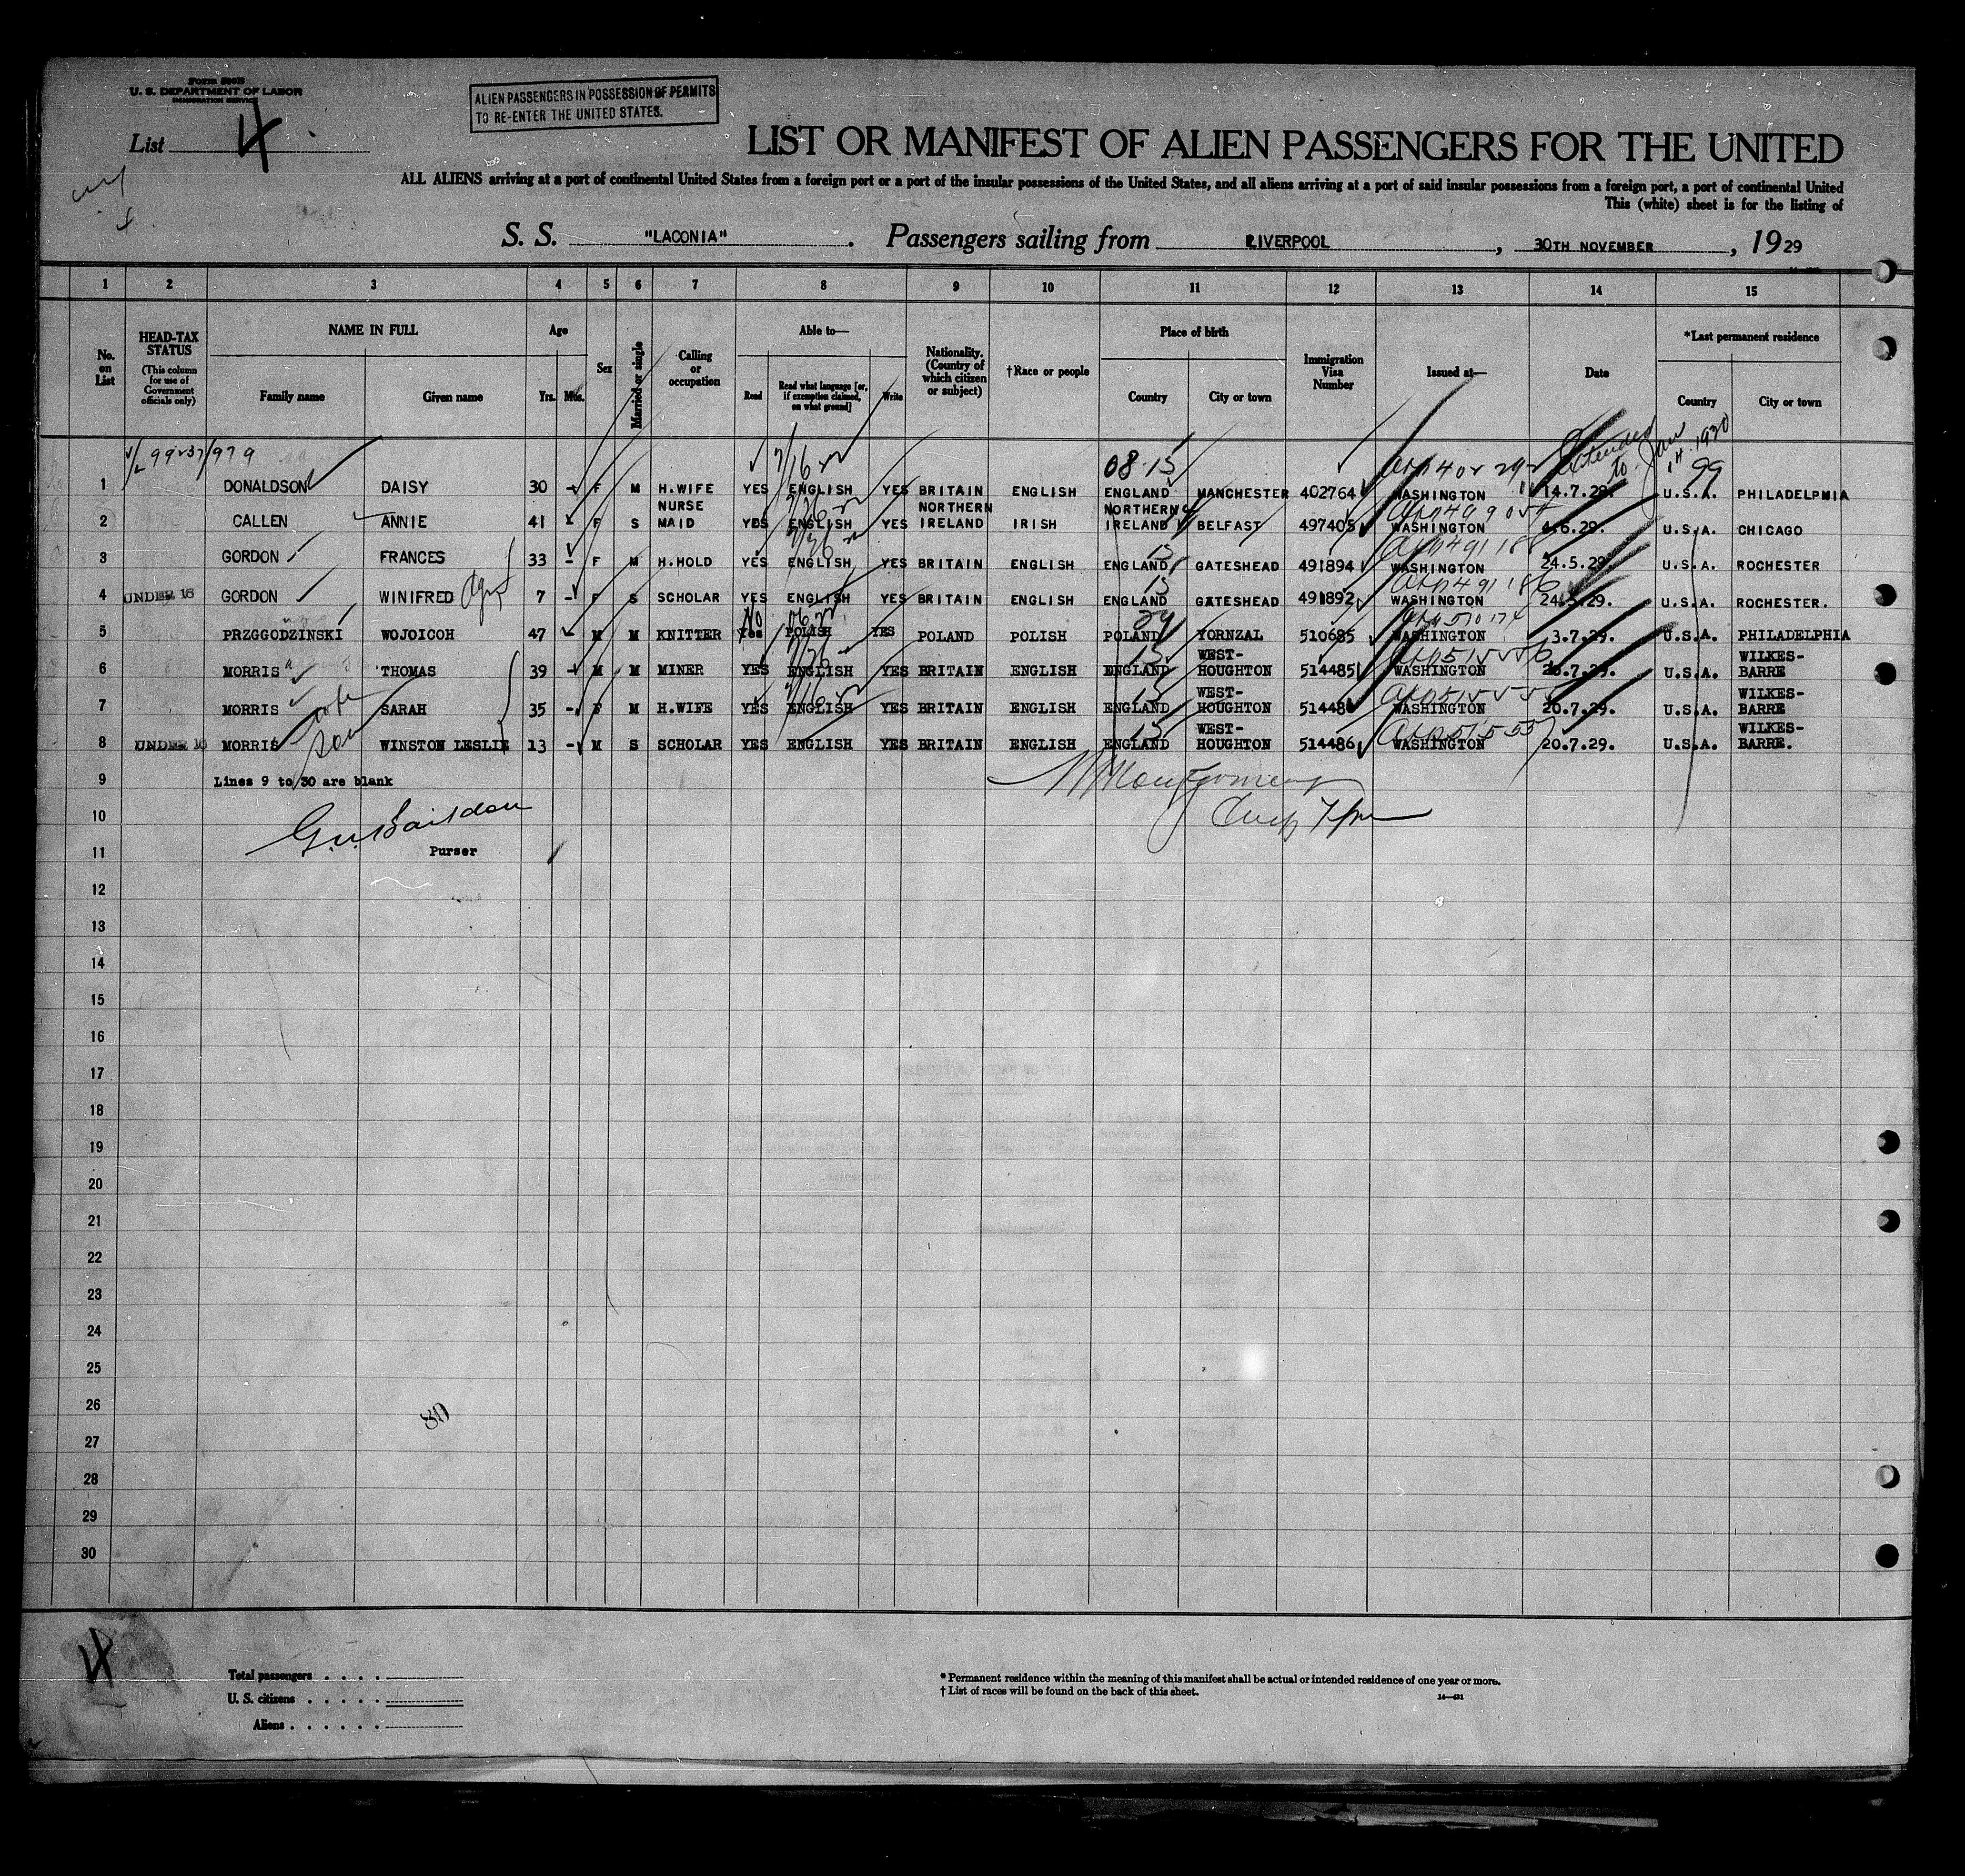 Form 500B
U. S. DEPARTMENT OF LABOR
IMMIGRATION SERVICE
ALIEN PASSENGERS IN POSSESSION OF PERMITS
TO RE-ENTER THE UNITED STATES.
List 4
LIST OR MANIFEST OF ALIEN PASSENGERS FOR THE UNITED
ALL ALIENS arriving at a port of continental United States from a foreign port or a port of the insular possessions of the United States, and all aliens arriving at a port of said insular possessions from a foreign port, a port of continental United
This (white) sheet is for the listing of
S. S. "LACONIA". Passengers sailing from LIVERPOOL, 30TH NOVEMBER, 1929
1 2 3 4 5 6 7 8 9 10 11 12 13 14 15
No. on List
HEAD-TAX STATUS (This column for use of Government officials only)
NAME IN FULL
Family name Given name
Age
Yrs. Mos.
Sex
Married or single
Calling or occupation
Able to—
Read Read what language [or, if exemption claimed, on what ground] Write
Nationality. (Country of which citizen or subject)
†Race or people
Place of birth
Country City or town
Immigration Visa Number
Issued at—
Date
*Last permanent residence
Country City or town
Extended to Jan 1930
08-13 99
1 DONALDSON DAISY 30 - F M H.WIFE YES ENGLISH YES BRITAIN ENGLISH ENGLAND MANCHESTER 402764 WASHINGTON 14.7.28. U.S.A. PHILADELPHIA
2 CALLEN ANNIE 41 - F S NURSE MAID YES ENGLISH YES NORTHERN IRELAND IRISH NORTHERN IRELAND BELFAST 497405 WASHINGTON 4.6.29. U.S.A. CHICAGO
3 GORDON FRANCES 33 - F M H.HOLD YES ENGLISH YES BRITAIN ENGLISH ENGLAND GATESHEAD 491894 WASHINGTON 24.5.29. U.S.A. ROCHESTER
4 UNDER 16 GORDON WINIFRED 7 - F S SCHOLAR YES ENGLISH YES BRITAIN ENGLISH ENGLAND GATESHEAD 491892 WASHINGTON 24.5.29. U.S.A. ROCHESTER.
5 PRZGGODZINSKI WOJOICOH 47 - M M KNITTER No Yes POLISH YES POLAND POLISH POLAND YORNZAL 510685 WASHINGTON 3.7.29. U.S.A. PHILADELPHIA
6 MORRIS THOMAS 39 - M M MINER YES ENGLISH YES BRITAIN ENGLISH ENGLAND WEST-HOUGHTON 514485 WASHINGTON 20.7.29. U.S.A. WILKES-BARRE
7 MORRIS wife SARAH 35 - F M H.WIFE YES ENGLISH YES BRITAIN ENGLISH ENGLAND WEST-HOUGHTON WASHINGTON 20.7.29. U.S.A. WILKES-BARRE
8 UNDER 16 MORRIS son WINSTON LESLIE 13 - M S SCHOLAR YES ENGLISH YES BRITAIN ENGLISH ENGLAND WEST-HOUGHTON 514486 WASHINGTON 20.7.29. U.S.A. WILKES-BARRE.
9 Lines 9 to 30 are blank
10
11 Purser
12
13
14
15
16
17
18
19
20
21
22
23
24
25
26
80
27
28
29
30
4
Total passengers . . . .
U. S. citizens . . . . .
Aliens . . . . . .
* Permanent residence within the meaning of this manifest shall be actual or intended residence of one year or more.
† List of races will be found on the back of this sheet.
14—421